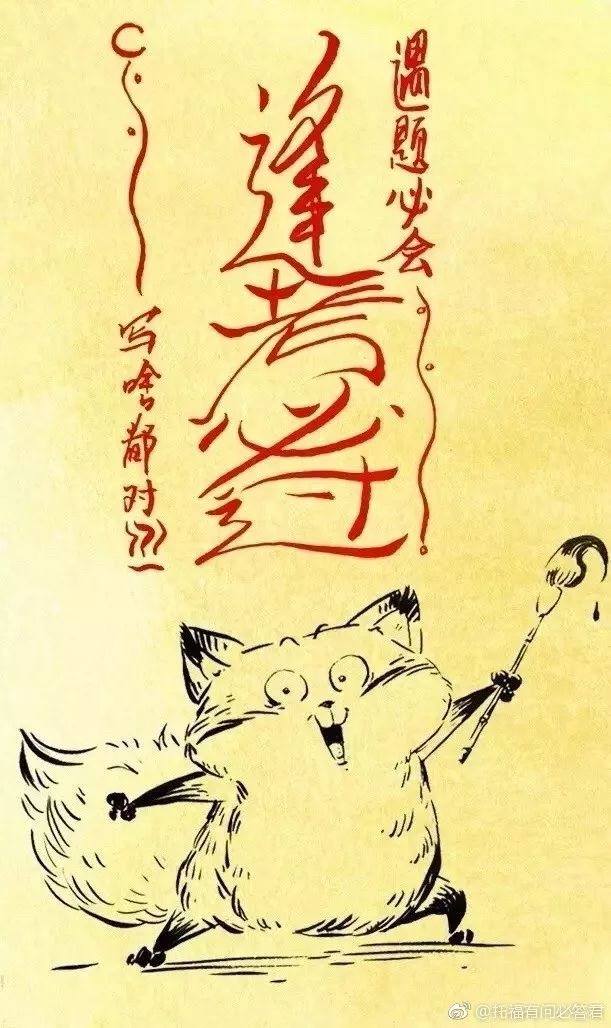 遇题必会
逢考必过
写啥都对
@托福有问必答君